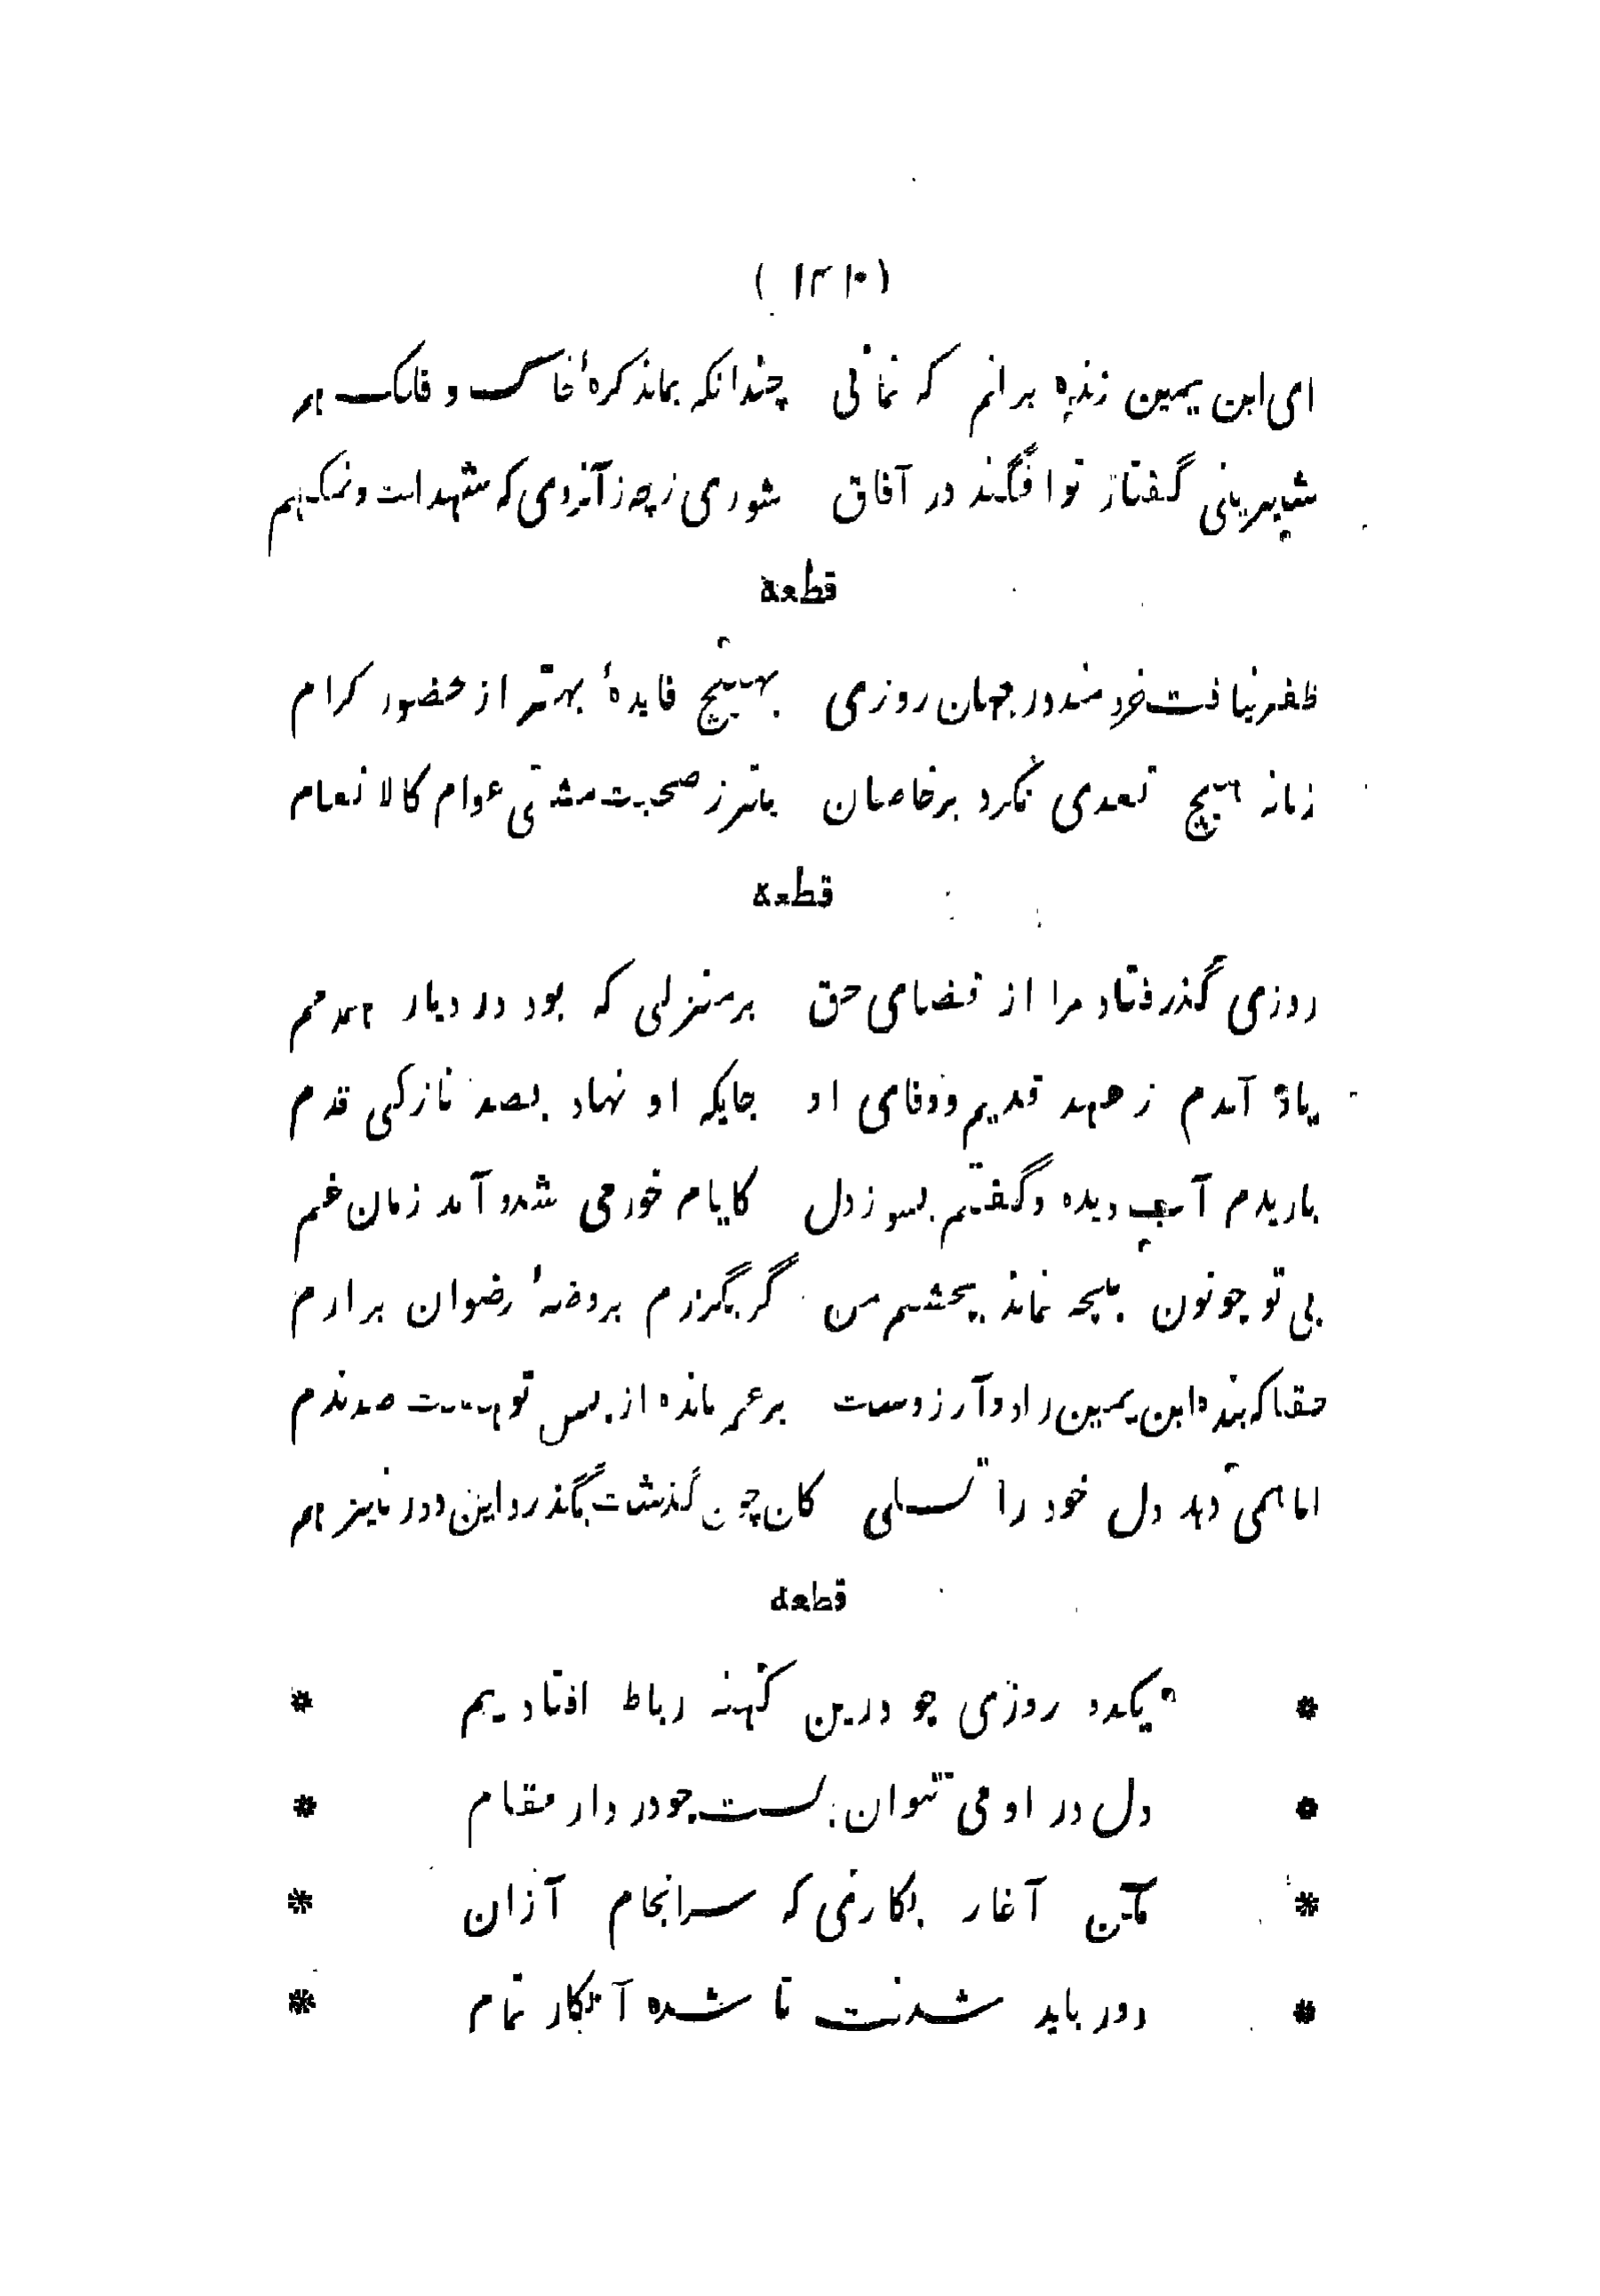 ( ۱۳۱۰ )
ای ابن یمین زنده برانم که نمانی چندانکه بماند کرهٔ خاک و فلک هم
شیرینی گفتار تو افگند در آفاق شوری نه چه زآنروی که شهد است و نمک هم
قطعه
ظفر نیافت خردمند در جهان روزی بهیچ فایدهٔ بهتر از حضور کرام
زمانه هیچ تعدی نکرد بر خاصان بتر ز صحبت مشتی عوام کالانعام
قطعة
روزی گذر فتاد مرا از قضای حق بر منزلی که بود در دیار همدمم
یاد آمدم ز عهد قدیم و وفای او جایکه او نهاد بصد نازکی قدم
باریدم آب دیده و گفتم بسوز دل کایام خورمی شد و آمد زمان غم
بی تو چو نون بیچه نماند بچشم من گر بگذرم بروضهٔ رضوان برارم
حقا که بنده ابن یمین را دو آرزوست بر عمر مانده از پس تو هست صد ندم
اما همی دهد دل خود را تسلی کان چون گذشت بگذرد این دور نیز هم
قطعه
* یکدو روزی چو درین کهنه رباط افتادیم *
* دل در او می نتوان بست چو در دار مقام *
* مکن آغاز بکاری که سرانجام آزان *
* دور باید شدنت نا شده آنکار تمام *